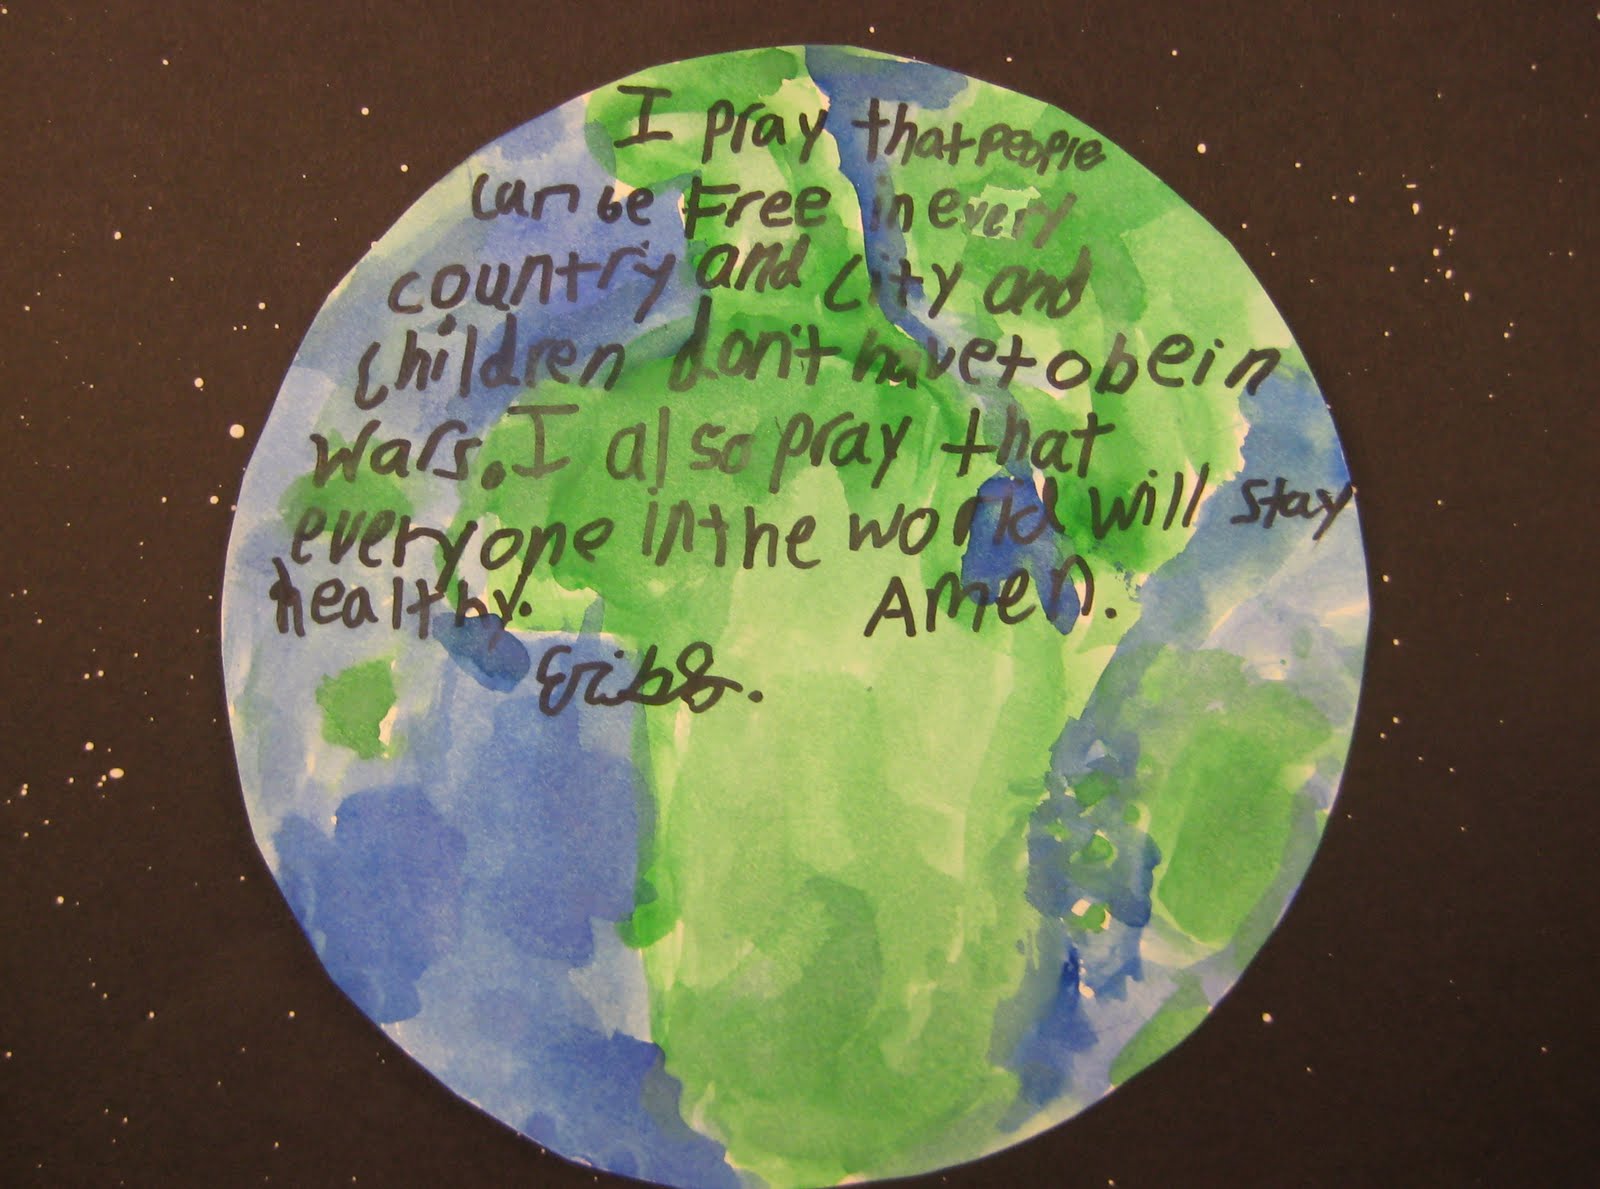 I pray that people
can be Free in every
country and city and
children don't have to be in
wars. I also pray that
everyone in the world will stay
healthy. Amen.